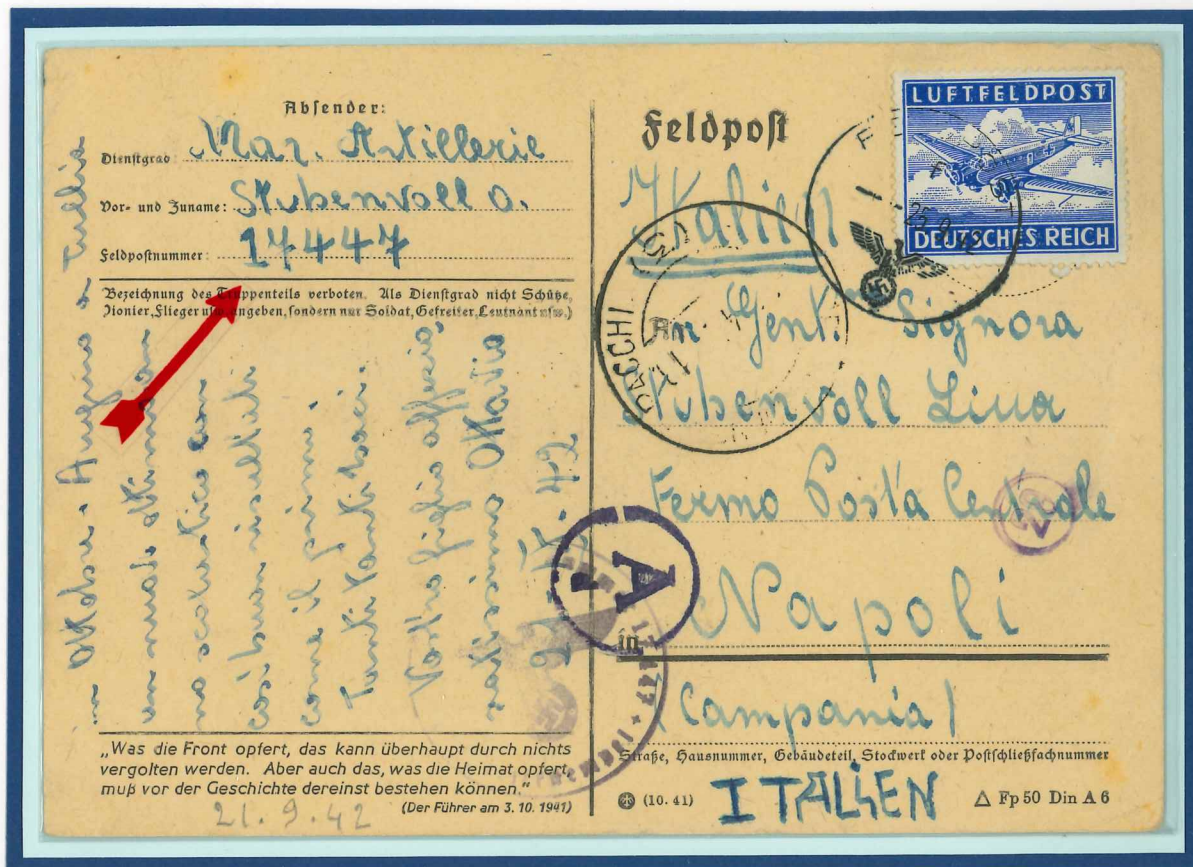 Absender:
Dienstgrad: Mar. Artillerie
Vor- und Zuname: Stubenvoll O.
Feldpostnummer: 17447
Bezeichnung des Truppenteils verboten. Als Dienstgrad nicht Schütze,
Pionier, Flieger usw. angeben, sondern nur Soldat, Gefreiter, Leutnant usw.)
in ottobre. Auguro a Tullia
un annuale ottimo
no scolastico con
così buoni risultati
come il primo.
Tanti tanti baci.
Vostro figlio affezio
natissimo Ottavio
„Was die Front opfert, das kann überhaupt durch nichts
vergolten werden. Aber auch das, was die Heimat opfert,
muß vor der Geschichte dereinst bestehen können.“
(Der Führer am 3. 10. 1941)
21. 9. 42
Feldpost
LUFTFELDPOST
DEUTSCHES REICH
25.9.42
Italien
PACCHI
An Gent. Signora
Stubenvoll Lina
Fermo Posta Centrale
A
in Napoli
(Campania)
17447
Straße, Hausnummer, Gebäudeteil, Stockwerk oder Postschließfachnummer
(10. 41)
ITALIEN
Fp 50 Din A 6